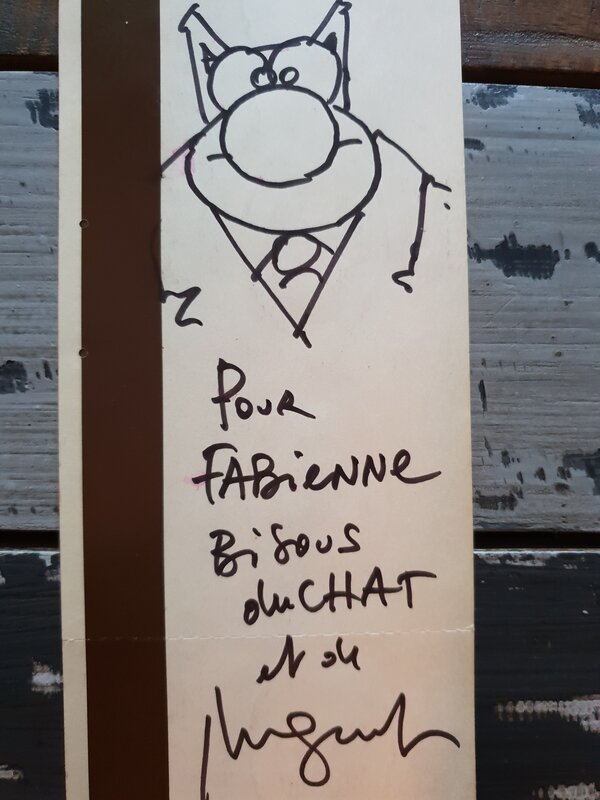 POUR
FABIENNE
BISOUS
du CHAT
et de